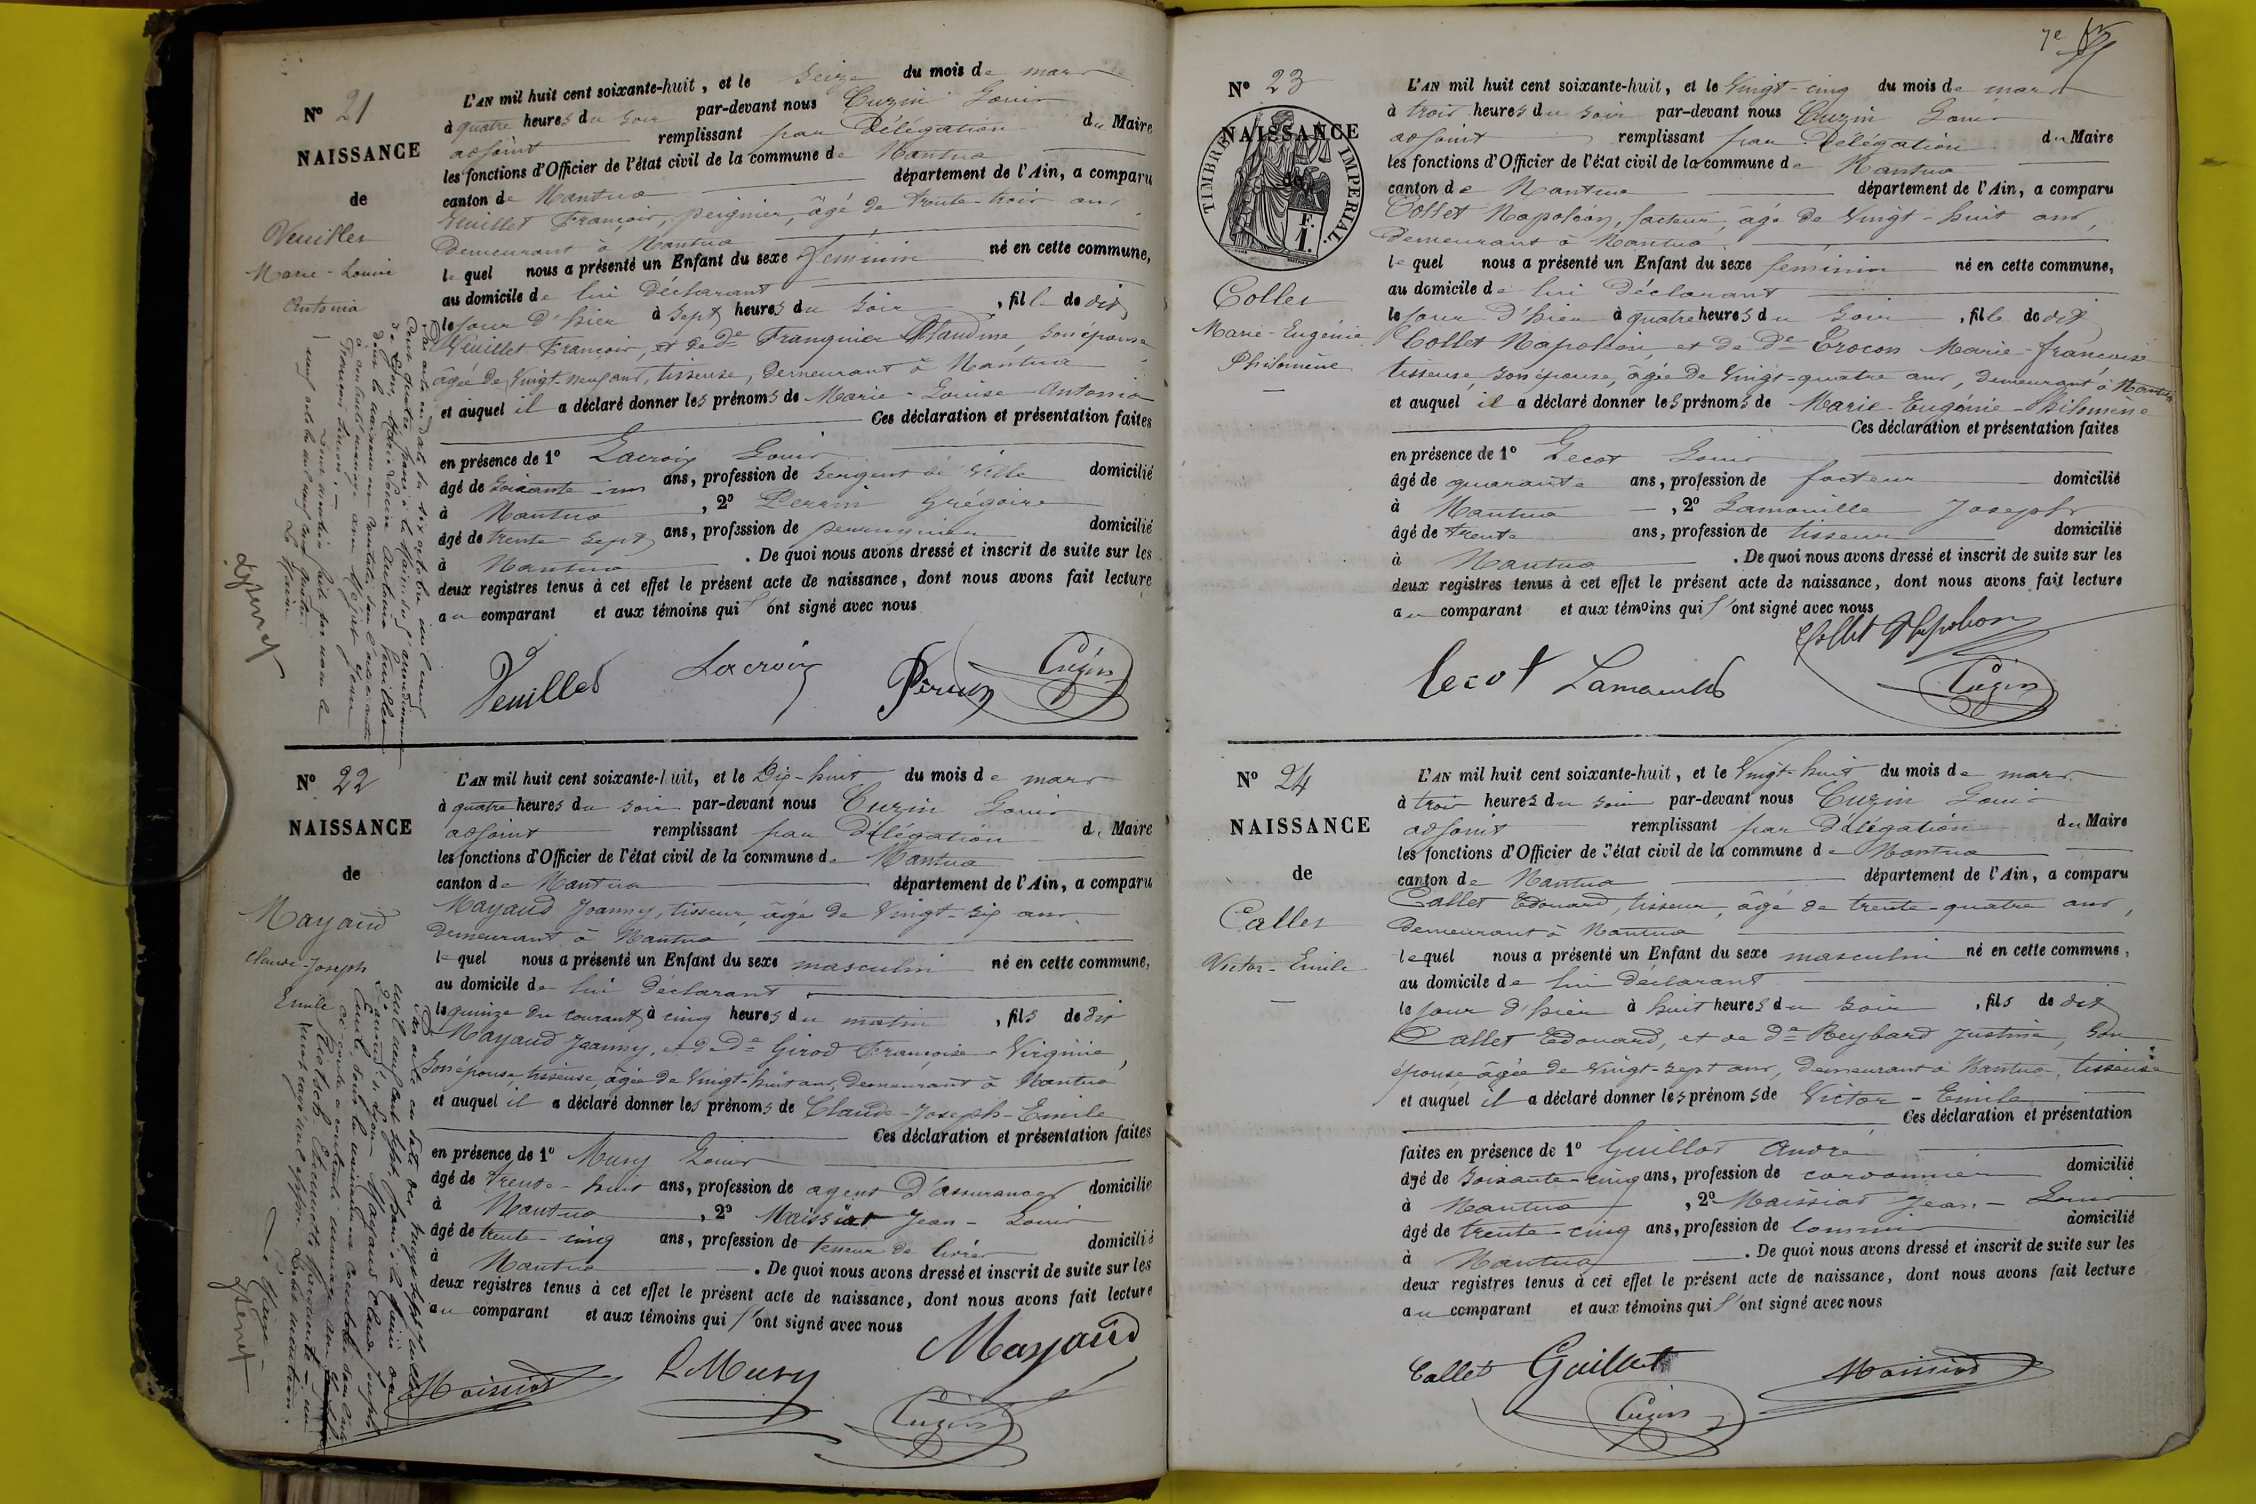 Nº 21
NAISSANCE
de
Veuillet
Marie-Louise
Antonia
L'AN mil huit cent soixante-huit, et le Seize du mois de mars
à quatre heures du soir par-devant nous Cuzin Louis
adjoint remplissant par Délégation du Maire
les fonctions d'Officier de l'état civil de la commune de Nantua
canton de Nantua département de l'Ain, a comparu
Veuillet François, peignier, âgé de trente-trois ans,
demeurant à Nantua
lequel nous a présenté un Enfant du sexe feminin né en cette commune,
au domicile de lui Déclarant
le jour d'hier à sept heures du soir, fille de dit
Veuillet François, et de De Franquier Claudine, son épouse
âgée de Vingt-neuf ans, tisseuse, demeurant à Nantua
et auquel il a déclaré donner les prénoms de Marie-Louise Antonia
Ces déclaration et présentation faites
en présence de 1º Lacroix Louis
âgé de soixante-un ans, profession de Sergent de Ville domicilié
à Nantua, 2º Perrin Grégoire
âgé de trente-sept ans, profession de perruquier domicilié
à Nantua. De quoi nous avons dressé et inscrit de suite sur les
deux registres tenus à cet effet le présent acte de naissance, dont nous avons fait lecture
au comparant et aux témoins qui l'ont signé avec nous
Veuillet Lacroix Perrin Cuzin
Nº 22
NAISSANCE
de
Mayaud
Claude-Joseph
Emile
L'AN mil huit cent soixante-huit, et le Dix-huit du mois de mars
à quatre heures du soir par-devant nous Cuzin Louis
adjoint remplissant par Délégation du Maire
les fonctions d'Officier de l'état civil de la commune de Nantua
canton de Nantua département de l'Ain, a comparu
Mayaud Joanny, tisseur, âgé de Vingt-six ans,
demeurant à Nantua
lequel nous a présenté un Enfant du sexe masculin né en cette commune,
au domicile de lui déclarant
le quinze du courant à cinq heures du matin, fils de dit
Mayaud Joanny, et de De Girod Françoise-Virginie,
son épouse, tisseuse, âgée de Vingt-huit ans, demeurant à Nantua
et auquel il a déclaré donner les prénoms de Claude-Joseph-Emile
Ces déclaration et présentation faites
en présence de 1º Mury Louis
âgé de trente-huit ans, profession de agent d'assurances domicilié
à Nantua, 2º Maissiat Jean-Louis
âgé de trente-cinq ans, profession de teneur de livres domicilié
à Nantua. De quoi nous avons dressé et inscrit de suite sur les
deux registres tenus à cet effet le présent acte de naissance, dont nous avons fait lecture
au comparant et aux témoins qui l'ont signé avec nous
Mayaud
Maissiat L Mury
Cuzin
7e
Nº 23
NAISSANCE
de
TIMBRE IMPERIAL
F. 1.
Collet
Marie-Eugénie
Philomène
L'AN mil huit cent soixante-huit, et le Vingt-cinq du mois de mars
à trois heures du soir par-devant nous Cuzin Louis
adjoint remplissant par Délégation du Maire
les fonctions d'Officier de l'état civil de la commune de Nantua
canton de Nantua département de l'Ain, a comparu
Collet Napoléon, facteur, âgé de Vingt-huit ans,
demeurant à Nantua
lequel nous a présenté un Enfant du sexe feminin né en cette commune,
au domicile de lui Déclarant
le jour d'hier à quatre heures du soir, fille de dit
Collet Napoléon, et de De Trocon Marie-françoise
tisseuse, son épouse, âgée de Vingt-quatre ans, demeurant à Nantua
et auquel il a déclaré donner les prénoms de Marie-Eugénie-Philomene
Ces déclaration et présentation faites
en présence de 1º Lecot Louis
âgé de quarante ans, profession de facteur domicilié
à Nantua, 2º Lamouille Joseph
âgé de trente ans, profession de tisseur domicilié
à Nantua. De quoi nous avons dressé et inscrit de suite sur les
deux registres tenus à cet effet le présent acte de naissance, dont nous avons fait lecture
au comparant et aux témoins qui l'ont signé avec nous
Collet Napoleon
Lecot Lamouille Cuzin
Nº 24
NAISSANCE
de
Callet
Victor-Emile
L'AN mil huit cent soixante-huit, et le Vingt-huit du mois de mars
à trois heures du soir par-devant nous Cuzin Louis
adjoint remplissant par Délégation du Maire
les fonctions d'Officier de l'état civil de la commune de Nantua
canton de Nantua département de l'Ain, a comparu
Callet Edouard, tisseur, âgé de trente-quatre ans,
demeurant à Nantua
lequel nous a présenté un Enfant du sexe masculin né en cette commune,
au domicile de lui déclarant
le jour d'hier à huit heures du soir, fils de dit
Callet Edouard, et de De Reybard Justine, son
épouse, âgée de Vingt-sept ans, demeurant à Nantua, tisseuse
et auquel il a déclaré donner les prénoms de Victor-Emile
Ces déclaration et présentation
faites en présence de 1º Guillot André
âgé de soixante-cinq ans, profession de cordonnier domicilié
à Nantua, 2º Maissiat Jean-Louis
âgé de trente-cinq ans, profession de commis domicilié
à Nantua. De quoi nous avons dressé et inscrit de suite sur les
deux registres tenus à cet effet le présent acte de naissance, dont nous avons fait lecture
au comparant et aux témoins qui l'ont signé avec nous
Callet Guillot Maissiat
Cuzin